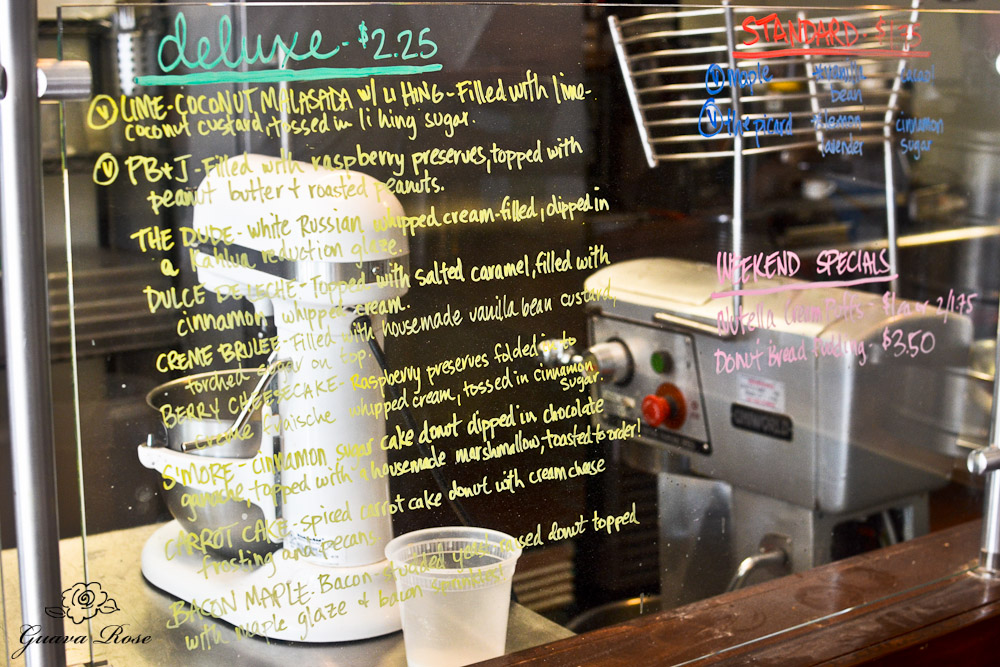 deluxe - $2.25
Ⓥ LIME-COCONUT MALASADA w/ LI HING - Filled with lime-
coconut custard, tossed in li hing sugar.
Ⓥ PB+J - Filled with raspberry preserves, topped with
peanut butter + roasted peanuts.
THE DUDE - white Russian whipped cream-filled, dipped in
a Kahlua reduction glaze.
DULCE DE LECHE - Topped with salted caramel, filled with
cinnamon whipped cream.
CREME BRULEE - Filled with housemade vanilla bean custard,
torched sugar on top.
BERRY CHEESECAKE - Raspberry preserves folded in to
creme fraische whipped cream, tossed in cinnamon
sugar.
S'MORE - cinnamon sugar cake donut dipped in chocolate
ganache, topped with a housemade marshmallow, toasted to order!
CARROT CAKE - spiced carrot cake donut with cream cheese
frosting and pecans.
BACON MAPLE. Bacon-studded yeast raised donut topped
with maple glaze + bacon sprinkles!
STANDARD - $1.75
Ⓥ maple vanilla bean cacao!
Ⓥ the picard lemon lavender cinnamon sugar
WEEKEND SPECIALS
Nutella Cream Puffs - $1 ea or 2/1.75
Donut Bread Pudding - $3.50
Guava Rose